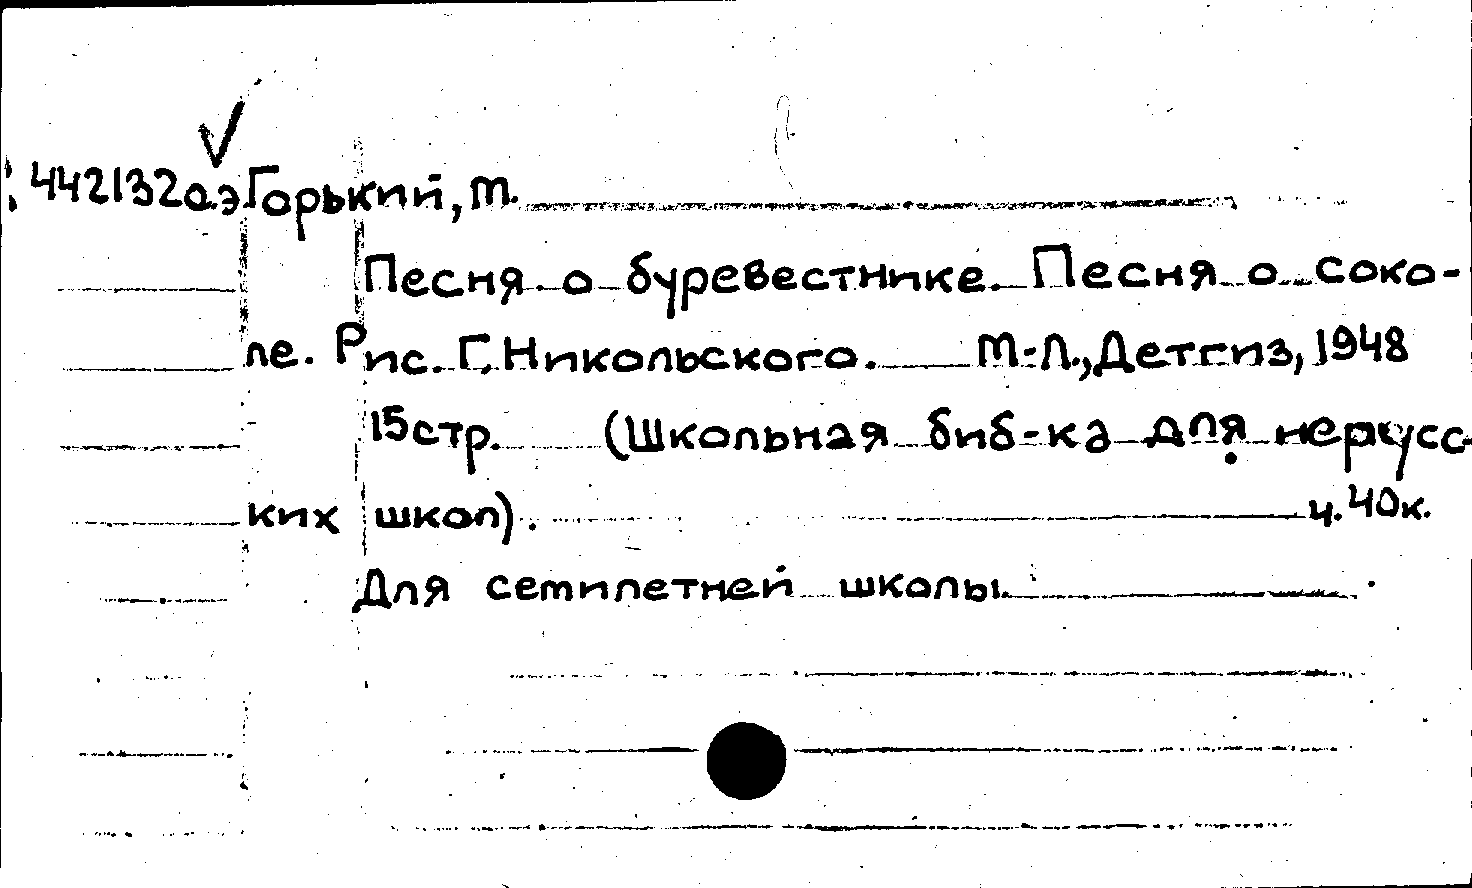 442132 а.э Горький, М.
Песня о буревестнике. Песня о соко-
ле. Рис. Г. Никольского. М-Л., Детгиз, 1948
15 стр. (Школьная биб-ка для нерусс-
ких школ). ц. 40 к.
Для семилетней школы.